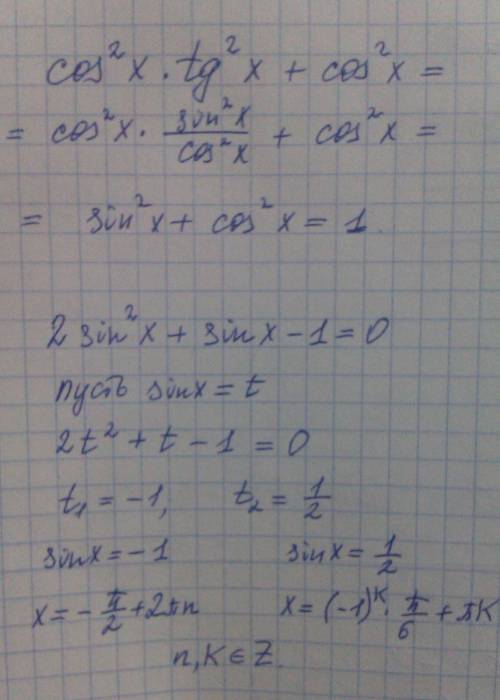 cos²x · tg²x + cos²x =
= cos²x · sin²x/cos²x + cos²x =
= sin²x + cos²x = 1.
2 sin²x + sinx − 1 = 0
пусть sinx = t
2t² + t − 1 = 0
t₁ = −1, t₂ = 1/2
sinx = −1 sinx = 1/2
x = −π/2 + 2πn x = (−1)ᴷ · π/6 + πK
n, K ∈ Z.